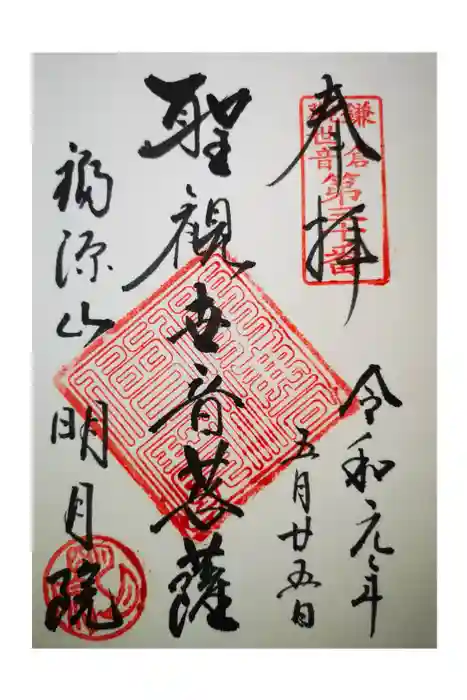 奉拝
鎌倉
観世音
第三十番
令和元年
五月廿五日
聖観世音菩薩
福源山
明月院